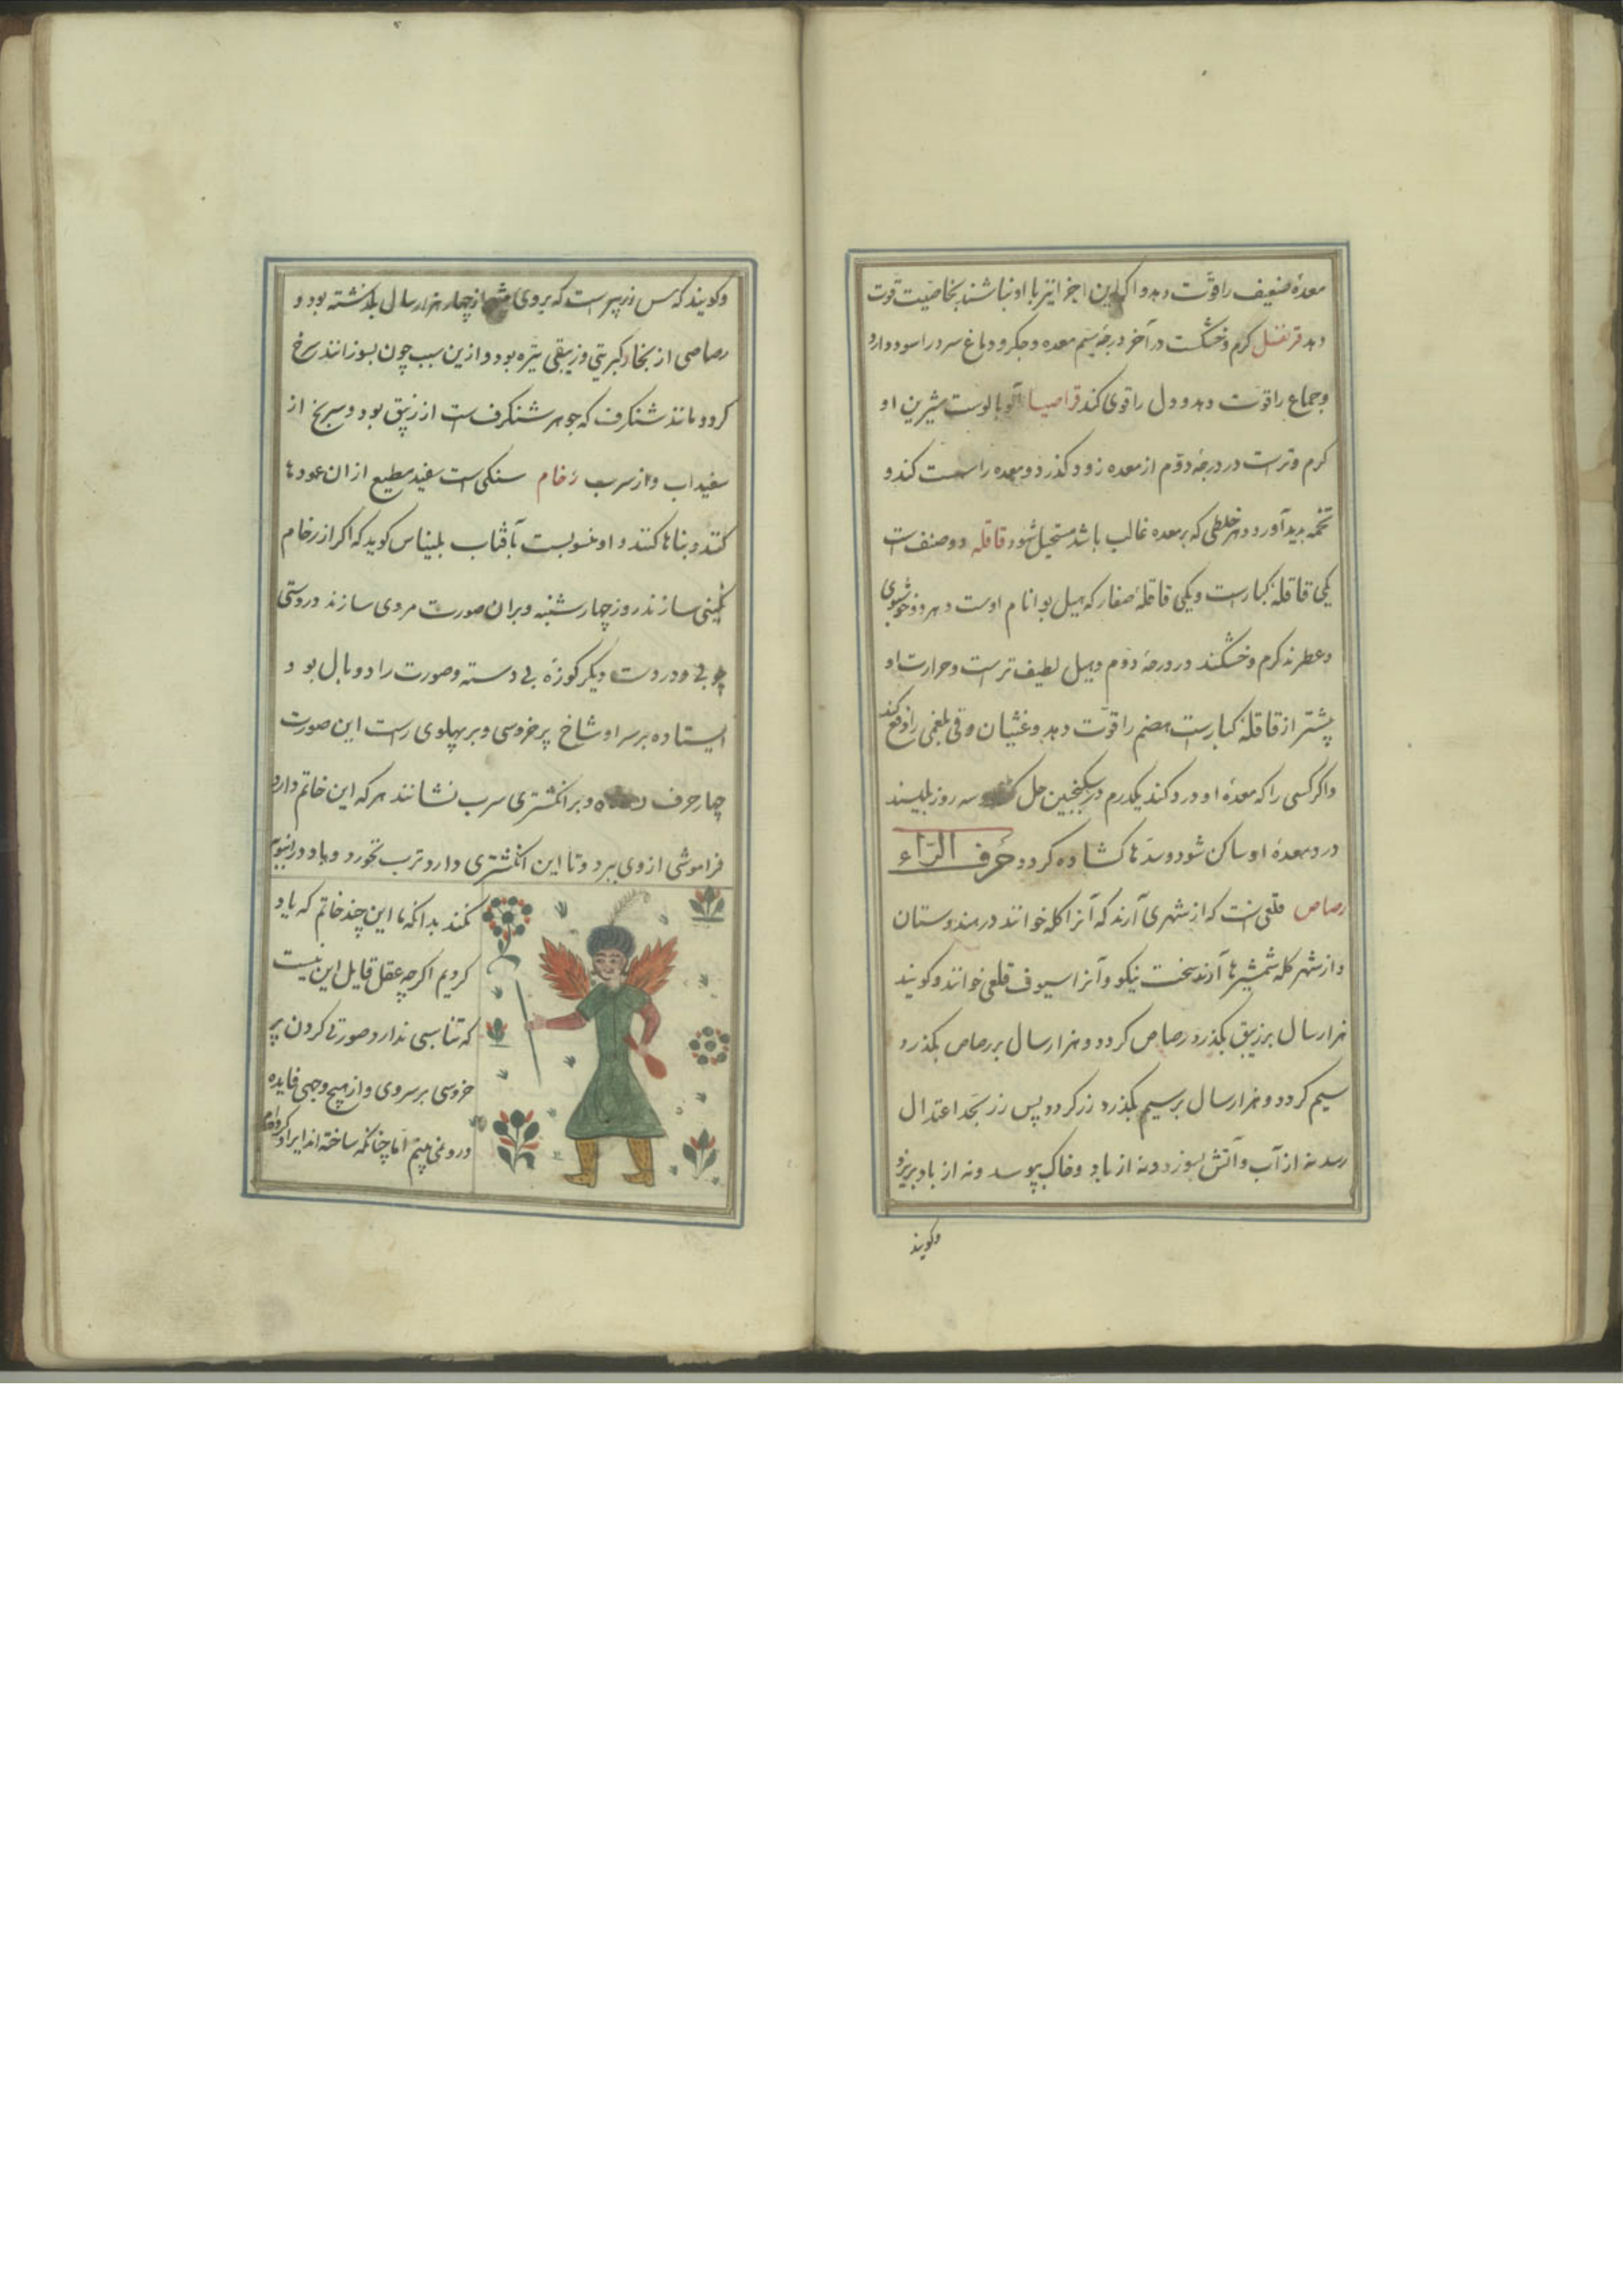 معدهٔ ضعیف را قوّت دهد و اکر این اجزا نیز با او نباشند بخاصیّت قوّت
دهد قرنفل کرم و خشکست در آخر درجهٔ سیّم معده و جکر و دماغ سرد را سود دارد
و جماع را قوّت دهد و دل را قوی کند قراصیا آلوبالوست شیرین او
کرم و ترست در درجهٔ دوّم از معده زود کذرد و معده را سست کند و
تخمه بدید آورد و هر خلطی که بر معده غالب باشد مستحیل شود قاقله دو صنف است
یکی قاقلهٔ کبارست و یکی قاقلهٔ صغار که هیل بوا نام اوست و هر دو خوشبوی
و عطرند کرم و خشکند در درجهٔ دوّم و هیل لطیف ترست و حرارت او
بیشتر از قاقلهٔ کبارست هضم را قوّت دهد و غثیان و قی بلغمی را دفع کند
و اکر کسی را که معدهٔ او درد کند یکدرم در سکنجبین حل سه روز بلیسد
درد معدهٔ او ساکن شود و سدّها کشاده کردد حرف الرّاء
رصاص قلعی است که از شهری آرند که آنرا کله خوانند در هندوستان
و از شهر کله شمشیرها آرند سخت نیکو و آنرا سیوف قلعی خوانند و کویند
هزار سال بر زیبق بکذرد رصاص کردد و هزار سال بر رصاص بکذرد
سیم کردد و هزار سال بر سیم بکذرد زر کردد پس زر بحد اعتدال
رسد نه از آب و آتش بسوزد و نه از باد و خاک بپوسد و نه از باد بریزد
و کویند
و کویند که مس زر پیرست که بر وی از چهار هزار سال بکذشته بود و
رصاصی از بخار کبریتی و زیبقی تیره بود و ازین سبب چون بسوزانند سرخ
کردد مانند شنکرف که جوهر شنکرفست از زیبق بود و سرنج از
سفیداب و از سرب رخام سنکیست سفید مطیع از ان عمودها
کنند و بناها کنند و او منسوبست بآفتاب بلیناس کوید که اکر از رخام
نکینی سازند روز چهارشنبه و بران صورت مردی سازند در دستی
چوبی و در دست دیکر کوزهٔ بی دسته و صورت را دو بال بود و
ایستاده بر سر او شاخ پر خروسی و بر پهلوی راست این صورت
چهار حرف و بر انکشتری سرب نشانند هر که این خاتم دارد
فراموشی از وی ببرد و تا این انکشتری دارد ترب نخورد و باد در انبوبه
نکند بدانکه ما این چند خاتم که یاد
کردیم اکرچه عقل قایل این نیست
که تناسبی ندارد صورتی کردن پر
خروسی بر سر وی و از هیچ وجهی فایده
درو نمی بینم امّا چنانکه ساخته اند ایراد کرده ام